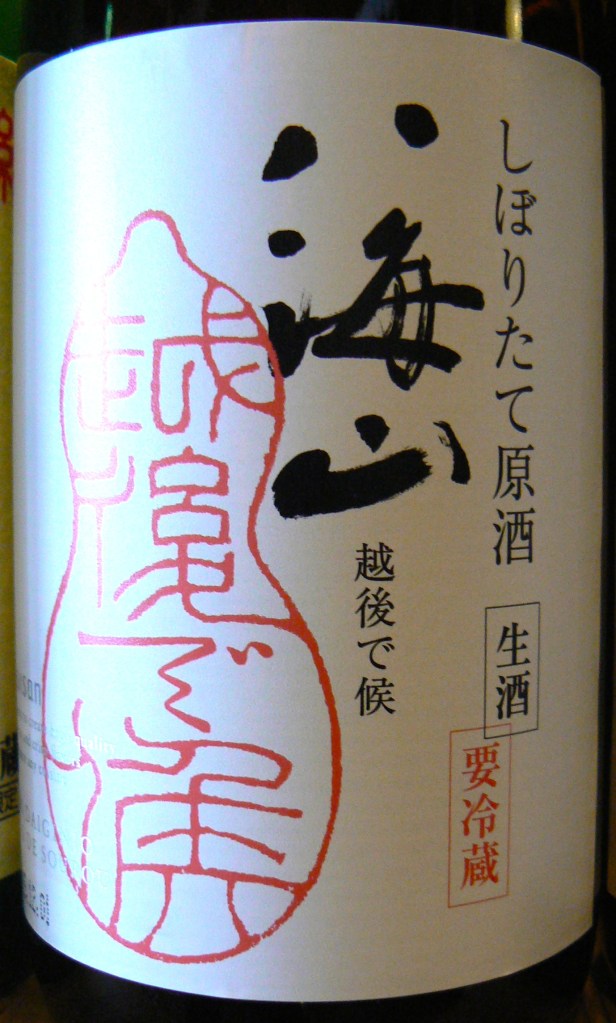 しぼりたて原酒
生酒
要冷蔵
八海山
越後で候
越後で候